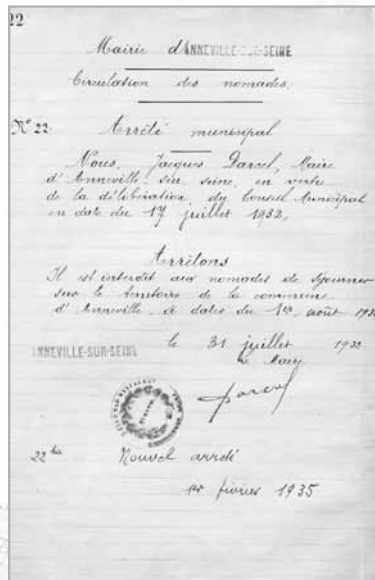 22
Mairie d'ANNEVILLE-SUR-SEINE
Circulation des nomades.
N° 22. Arrêté municipal
Nous, Jacques Darcel, Maire
d'Anneville-sur-seine, en vertu
de la délibération du Conseil Municipal
en date du 17 juillet 1932,
Arrêtons
Il est interdit aux nomades de séjourner
sur le territoire de la commune
d'Anneville à dater du 1er août 193
ANNEVILLE-SUR-SEINE le 31 juillet 1932
le Maire
Darcel
22 bis Nouvel arrêté
1er février 1935